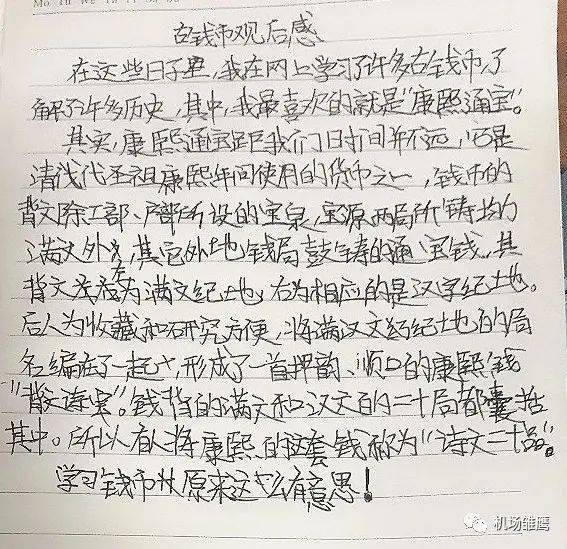 Mo Tu We Th Fr Sa Su
古钱币观后感
在这些日子里,我在网上学习了许多古钱币,了
解了许多历史,其中,我最喜欢的就是“康熙通宝”。
其实,康熙通宝距我们时间并不远,它是
清代圣祖康熙年间使用的货币之一,钱币的
背文除工部、户部所设的宝泉,宝源两局所铸均为
满文外,其它外地钱局鼓铸的通宝钱,其
背文左为满文纪地,右为相应的是汉字纪地。
后人为收藏和研究方便,将满汉文纪地的局
名编在了一起,形成了一首押韵、顺口的康熙钱
“背文诗”。钱背的满文和汉文的二十局都囊括
其中。所以有人将康熙的这套钱称为“诗文二十品”。
学习钱币原来这么有意思!
机场雏鹰